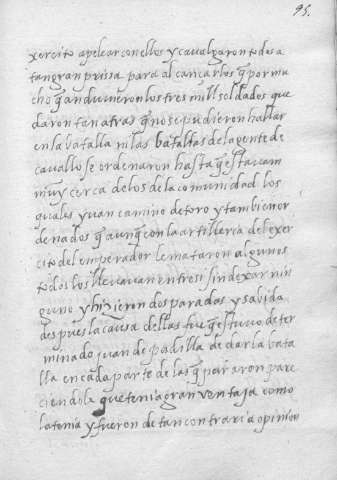 95.
xercito apelear con ellos y cavalgaron todos a
tan gran priisa para alcançarlos q̃ por mu
cho q̃ anduvieron los tres mill soldados que
daron tan atras q̃ no se pudieron hallar
en la batalla ni las batallas de la gente de
cavallo se ordenaron hasta q̃ estavam
muy cerca de los de la comunidad los
quales yvan camino de toro y tambien or
denados q̃ aunq̃ con la artilleria del exer
cito del emperador le mataron algunos
todos los llevavan entre si sin dexar nin
guno y hizieron dos paradas y sabida
despues la causa dellas fue q̃ estuvo deter
minado juan de padilla de dar la bata
lla en cada parte de las q̃ pararon pare
ciendole que tenia gran ventaja como
la tenia y fueron de tan contraria opinion